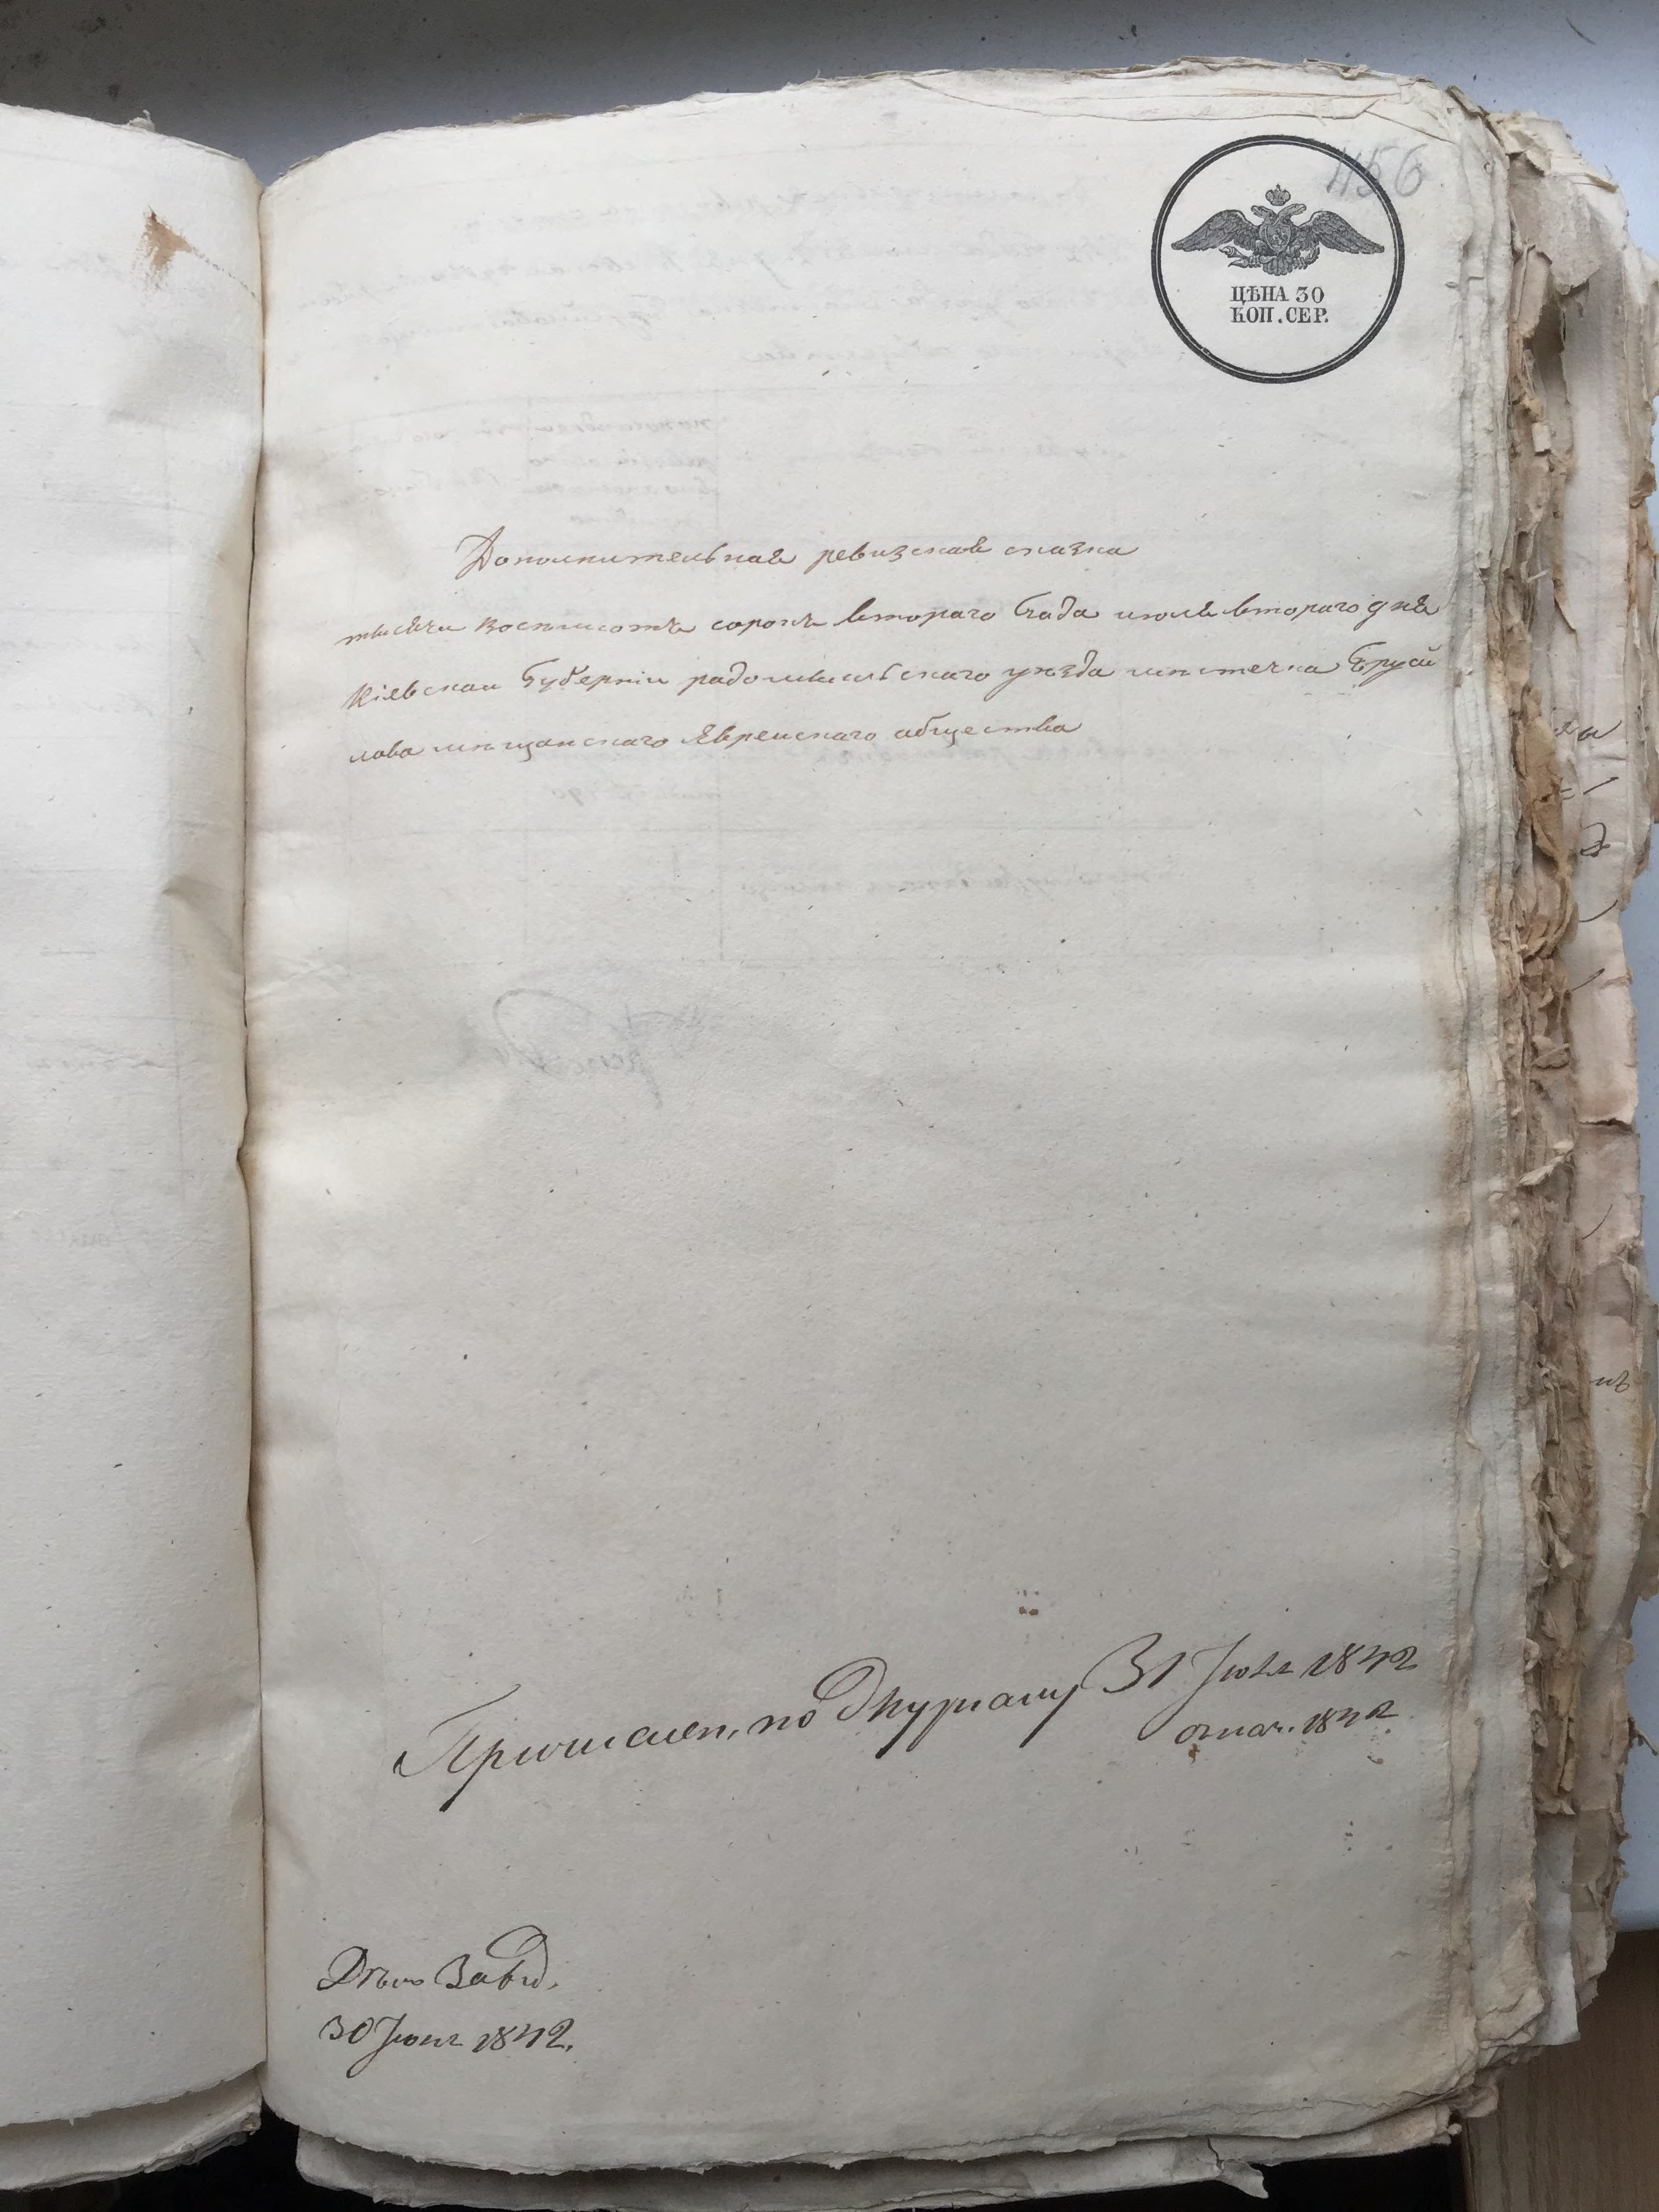 1156
ЦѢНА 30
КОП. СЕР.
Дополнительная ревизская сказка
тысяча восемьсотъ сорокъ втораго Года июля втораго дня
Кіевской Губерніи радомысльскаго уезда мѣстечка Бруси
лова мѣщанскаго Еврейскаго общества
по Журналу 31 Июля 1842
1842
30 Июля 1842.